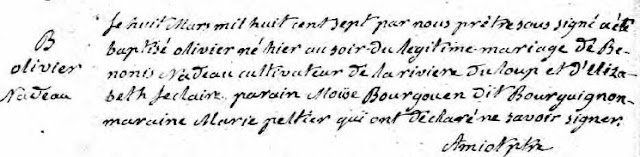 B
olivier
Nadeau
Le huit Mars mil huit cent sept par nous prêtre sous signé a été
baptisé olivier né hier au soir du legitime mariage de Be-
nonis Nadeau cultivateur de la riviere du loup et d'Eliza-
beth leclaire, parain Moïse Bourgouen dit Bourguignon
maraine Marie peltier qui ont déclaré ne savoir signer.
Amiot ptre